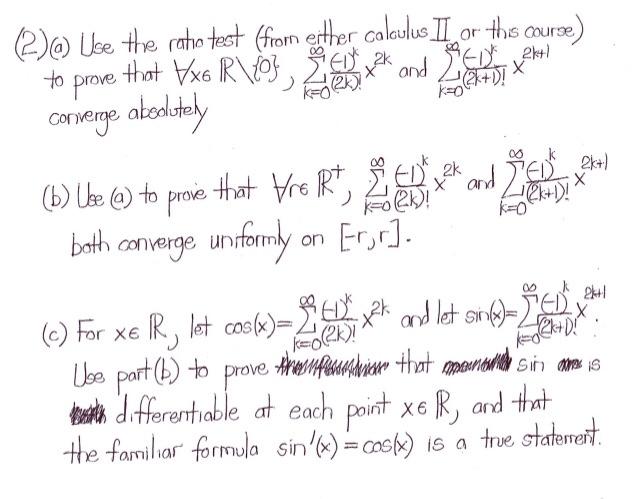 (2)(a) Use the ratio test (from either calculus II or this course)
to prove that ∀x∈ℝ\{0}, ∑_{k=0}^{∞} (-1)^k/(2k)! x^{2k} and ∑_{k=0}^{∞} (-1)^k/(2k+1)! x^{2k+1}
converge absolutely
(b) Use (a) to prove that ∀r∈ℝ⁺, ∑_{k=0}^{∞} (-1)^k/(2k)! x^{2k} and ∑_{k=0}^{∞} (-1)^k/(2k+1)! x^{2k+1}
both converge uniformly on [-r,r].
(c) For x∈ℝ, let cos(x)=∑_{k=0}^{∞} (-1)^k/(2k)! x^{2k} and let sin(x)=∑_{k=0}^{∞} (-1)^k/(2k+1)! x^{2k+1}.
Use part (b) to prove that sin is
differentiable at each point x∈ℝ, and that
the familiar formula sin'(x)=cos(x) is a true statement.